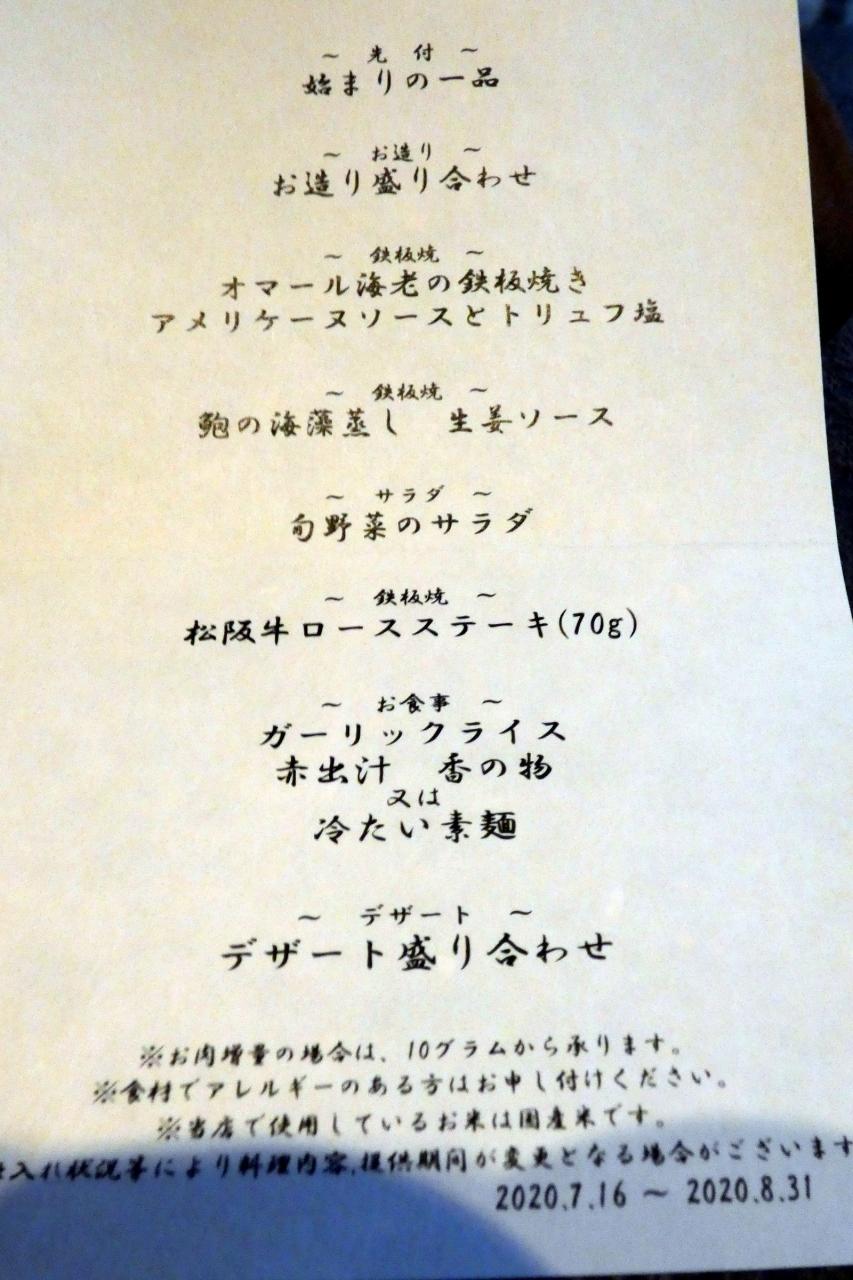 ～ 先 付 ～
始まりの一品
～ お造り ～
お造り盛り合わせ
～ 鉄板焼 ～
オマール海老の鉄板焼き
アメリケーヌソースとトリュフ塩
～ 鉄板焼 ～
鮑の海藻蒸し 生姜ソース
～ サラダ ～
旬野菜のサラダ
～ 鉄板焼 ～
松阪牛ロースステーキ(70g)
～ お食事 ～
ガーリックライス
赤出汁 香の物
又は
冷たい素麺
～ デザート ～
デザート盛り合わせ
※お肉増量の場合は、10グラムから承ります。
※食材でアレルギーのある方はお申し付けください。
※当店で使用しているお米は国産米です。
入れ状況等により料理内容,提供期間が変更となる場合がございます
2020.7.16 ～ 2020.8.31